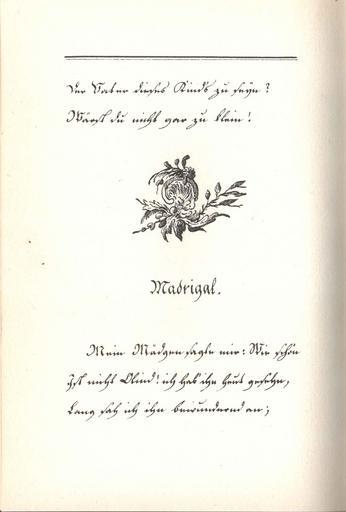 Der Vater dieses Kinds zu seyn?
Wärst du nicht gar zu klein!
Madrigal.
Mein Mädgen sagte mir: Wie schön
Ist nicht Olind! ich hab' ihn heut gesehn,
Lang sah ich ihn bewundernd an;